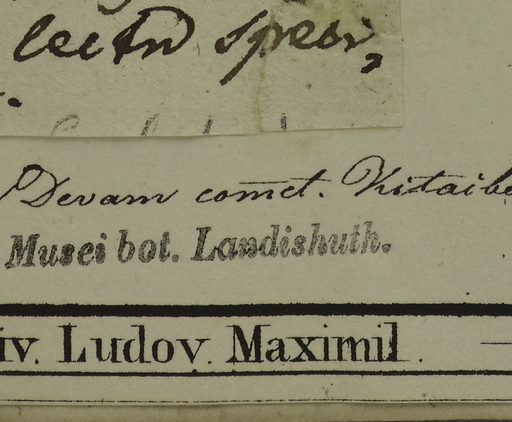 lectn speci,
Devam comct. Kitaibe
Musei bot. Landishuth.
iv. Ludov. Maximil.